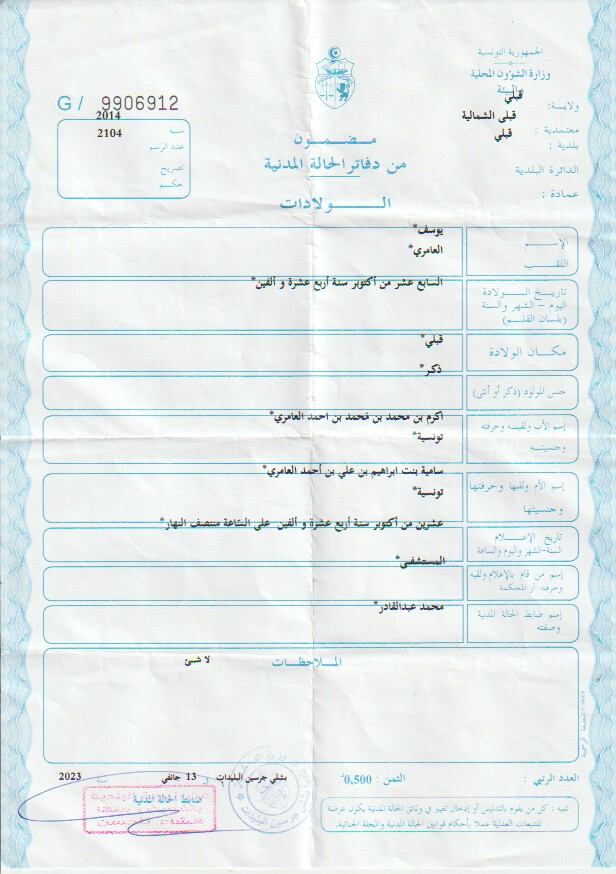 الجمهورية التونسية
وزارة الشؤون المحلية
والبيئة
ولاية: قبلي
معتمدية : قبلى الشمالية
بلدية : قبلي
الدائرة البلدية
عمادة :
G / 9906912
سنة 2014
عدد الرسم 2104
تصريح
حكم
مضمون
من دفاتر الحالة المدنية
الولادات
الإسم يوسف*
اللقب العامري*
تاريخ الولادة
اليوم - الشهر والسنة
(بلسان القلم)
السابع عشر من أكتوبر سنة أربع عشرة و ألفين*
مكان الولادة قبلي*
جنس المولود (ذكر أو أنثى) ذكر*
إسم الأب ولقبه وحرفته
وجنسيته
اكرم بن محمد بن مَحمد بن احمد العامري*
تونسية*
إسم الأم ولقبها وحرفتها
وجنسيتها
سامية بنت ابراهيم بن علي بن أحمد العامري*
تونسية*
تاريخ الإعلام
السنة-الشهر واليوم والساعة
عشرين من أكتوبر سنة أربع عشرة و ألفين على السّاعة منتصف النهار*
إسم من قام بالإعلام ولقبه
وحرفته أو المحكمة
المستشفى*
إسم ضابط الحالة المدنية
وصفته
محمد عبدالقادر*
الملاحظات
لا شئ
العدد الرتبي : الثمن : 0,500د
بشلي جرسين البليدات في 13 جانفي سنة 2023
ضابط الحالة المدنية
تنبيه : كل من يقوم بالتدليس أو إدخال تغيير في وثائق الحالة المدنية يكون عرضة
للتتبعات العدلية عملا بأحكام قوانين الحالة المدنية والمجلة الجنائية.